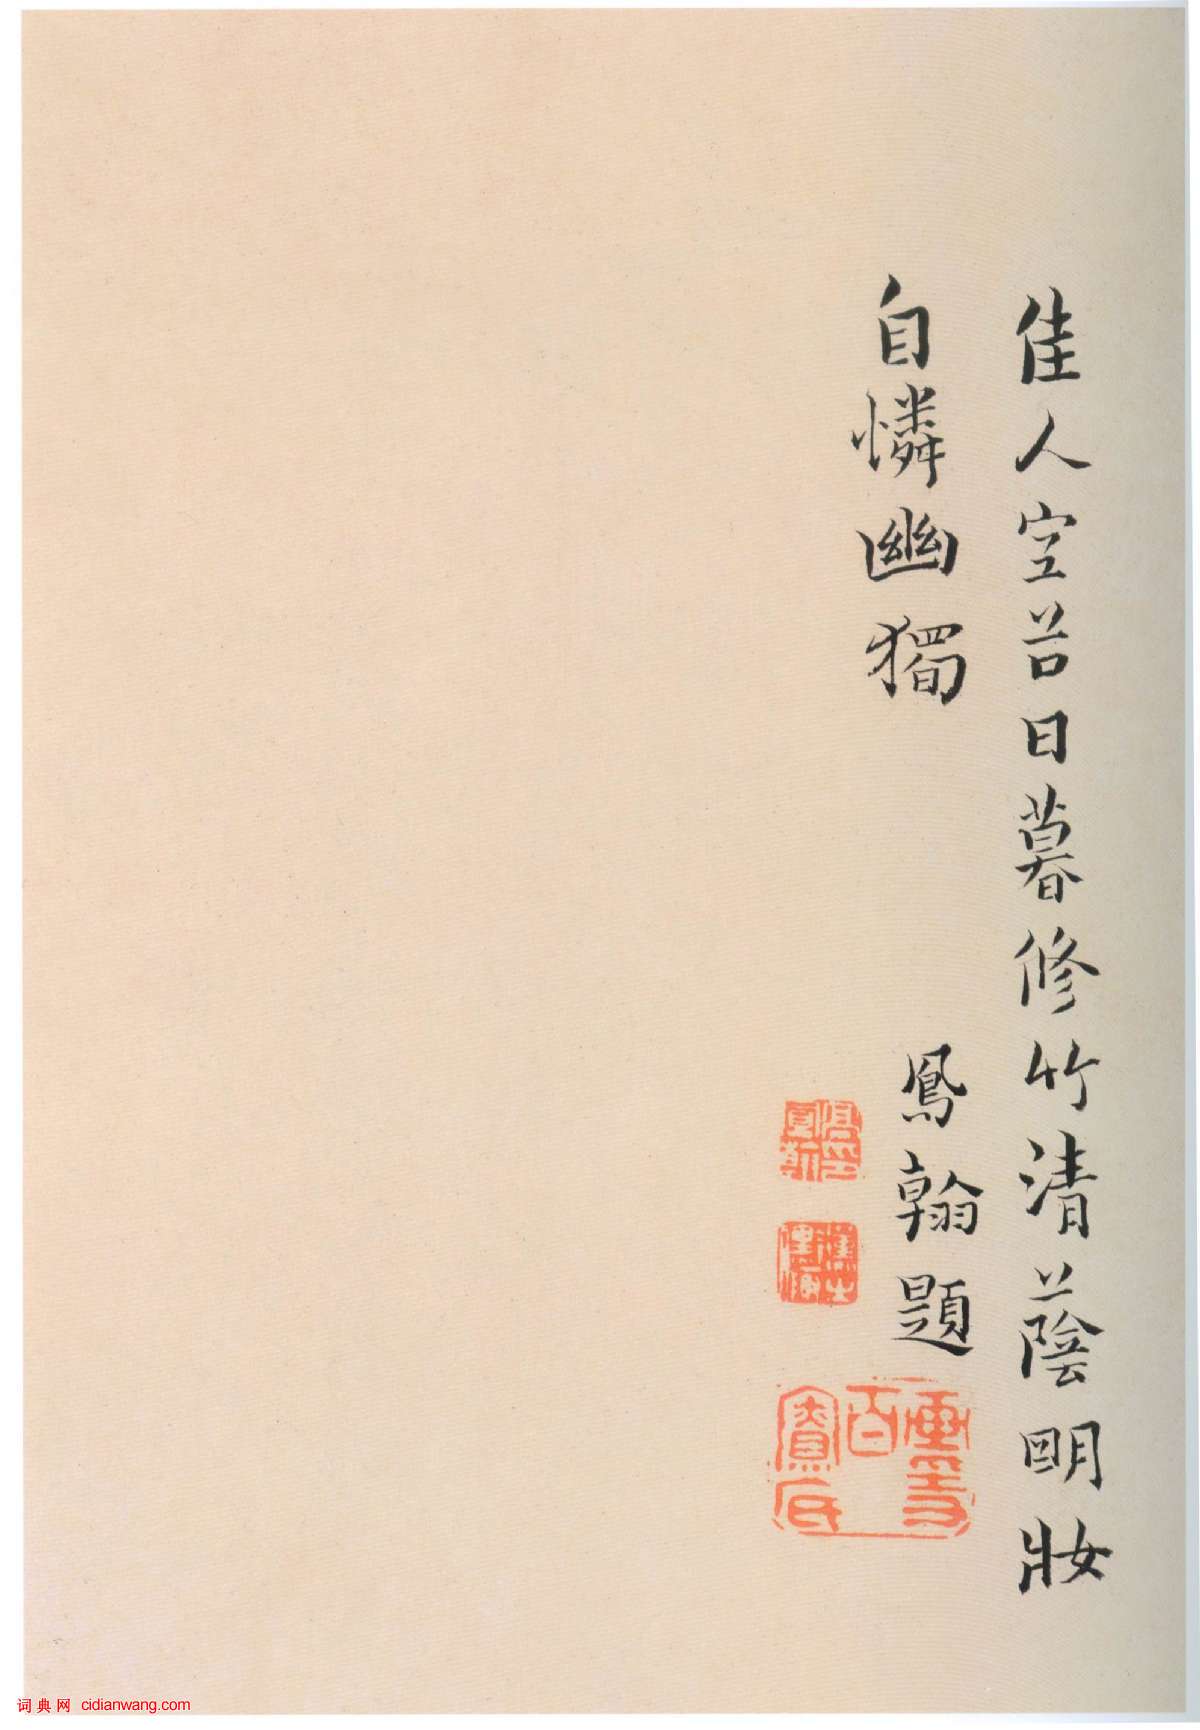 佳人空谷日暮修竹清蔭明妝
自憐幽獨
鳳翰題
词典网 cidianwang.com